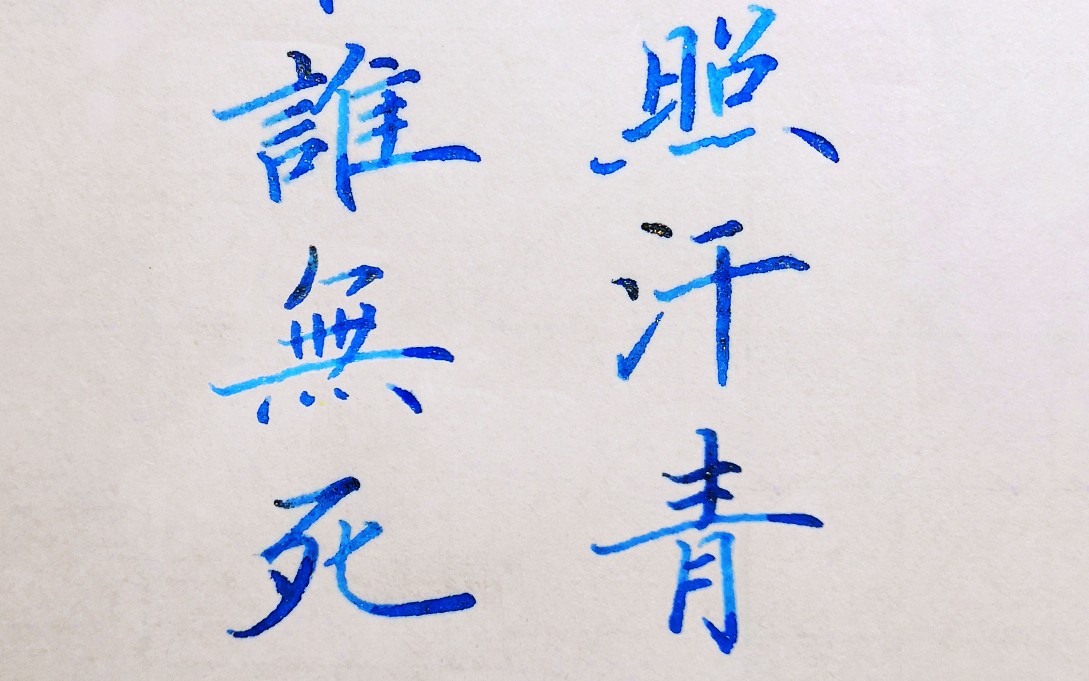 誰無死
照汗青